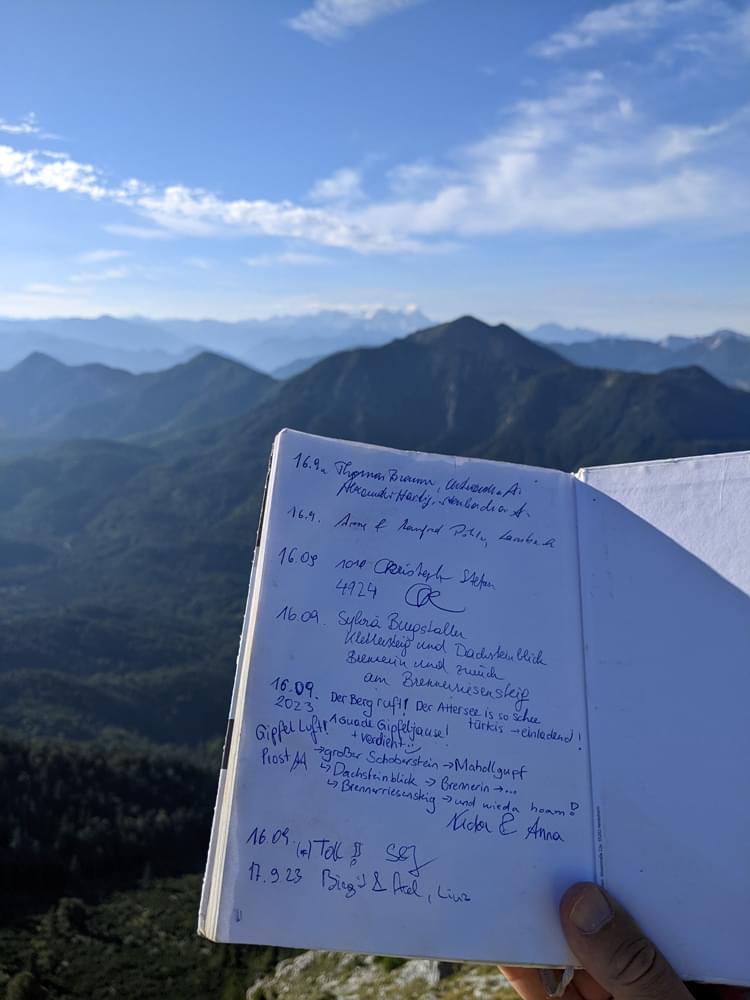 16.9. Thomas Braun,
16.9. Anna & Manfred Pohn, Lambach
16.09 1010 Christoph Stefan
4924
16.09. Sylvia Burgstaller
Klettersteig und Dachsteinblick
Brennerin und zurück
am Brennerriesensteig
16.09. Der Berg ruft! Der Attersee is so schee
2023 türkis → einladend!
Gipfel Luft! 1 Guade Gipfeljause!
+ verdient
Prost → großer Schoberstein → Mahdlgupf
↳ Dachsteinblick → Brennerin → ...
↳ Brennerriesensteig → und wieda hoam!
& Anna
16.09. Toll!
17.9.23 Birgit & Axel, Linz